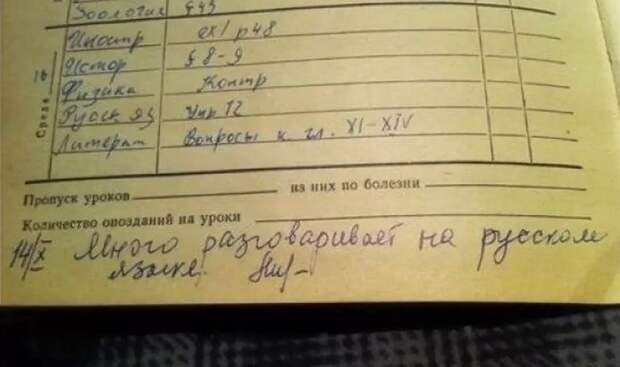 Зоология §43
Иностр ex 1 p 48
Истор § 8-9
16
Физика Контр
Русск яз Упр 72
Среда
Литерат Вопросы к гл. XI-XIV
Пропуск уроков из них по болезни
Количество опозданий на уроки
14/X Много разговаривает на русском
языке.